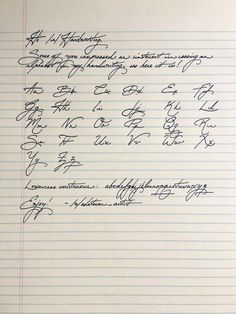 r/ Handwriting
Some of you expressed an interest in seeing an
alphabet for my handwriting, so here it is!
Aa Bb Cc Dd Ee Ff
Gg Hh Ii Jj Kk Ll
Mm Nn Oo Pp Qq Rr
Ss Tt Uu Vv Ww Xx
Yy Zz
Lowercase continuous: abcdefghijklmnopqrstuvwxyz
Enjoy!